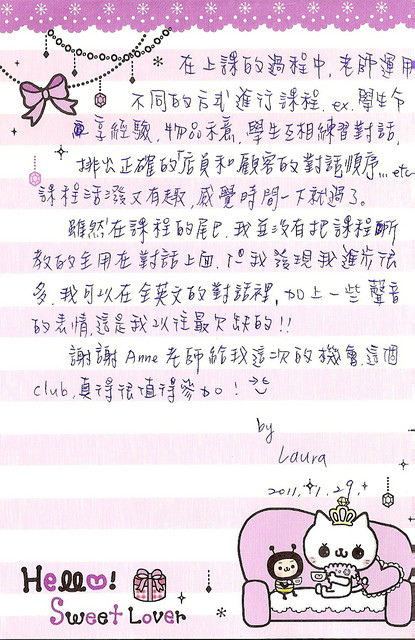 ★ 在上課的過程中,老師運用
不同的方式進行課程. ex. 學生分
享經驗, 物品示意, 學生互相練習對話,
排出正確的「店員和顧客的對話順序... etc
課程活潑又有趣, 感覺時間一下就過了。
雖然在課程的尾巴, 我並沒有把課程所
教的全用在對話上面, 但我發現我進步很
多, 我可以在全英文的對話裡, 加上一些聲音
的表情, 這是我以往最欠缺的!!
謝謝 Anne 老師給我這次的機會, 這個
club, 真得很值得參加!
by
Laura
2011. 1. 29.
Hello!
Sweet Lover